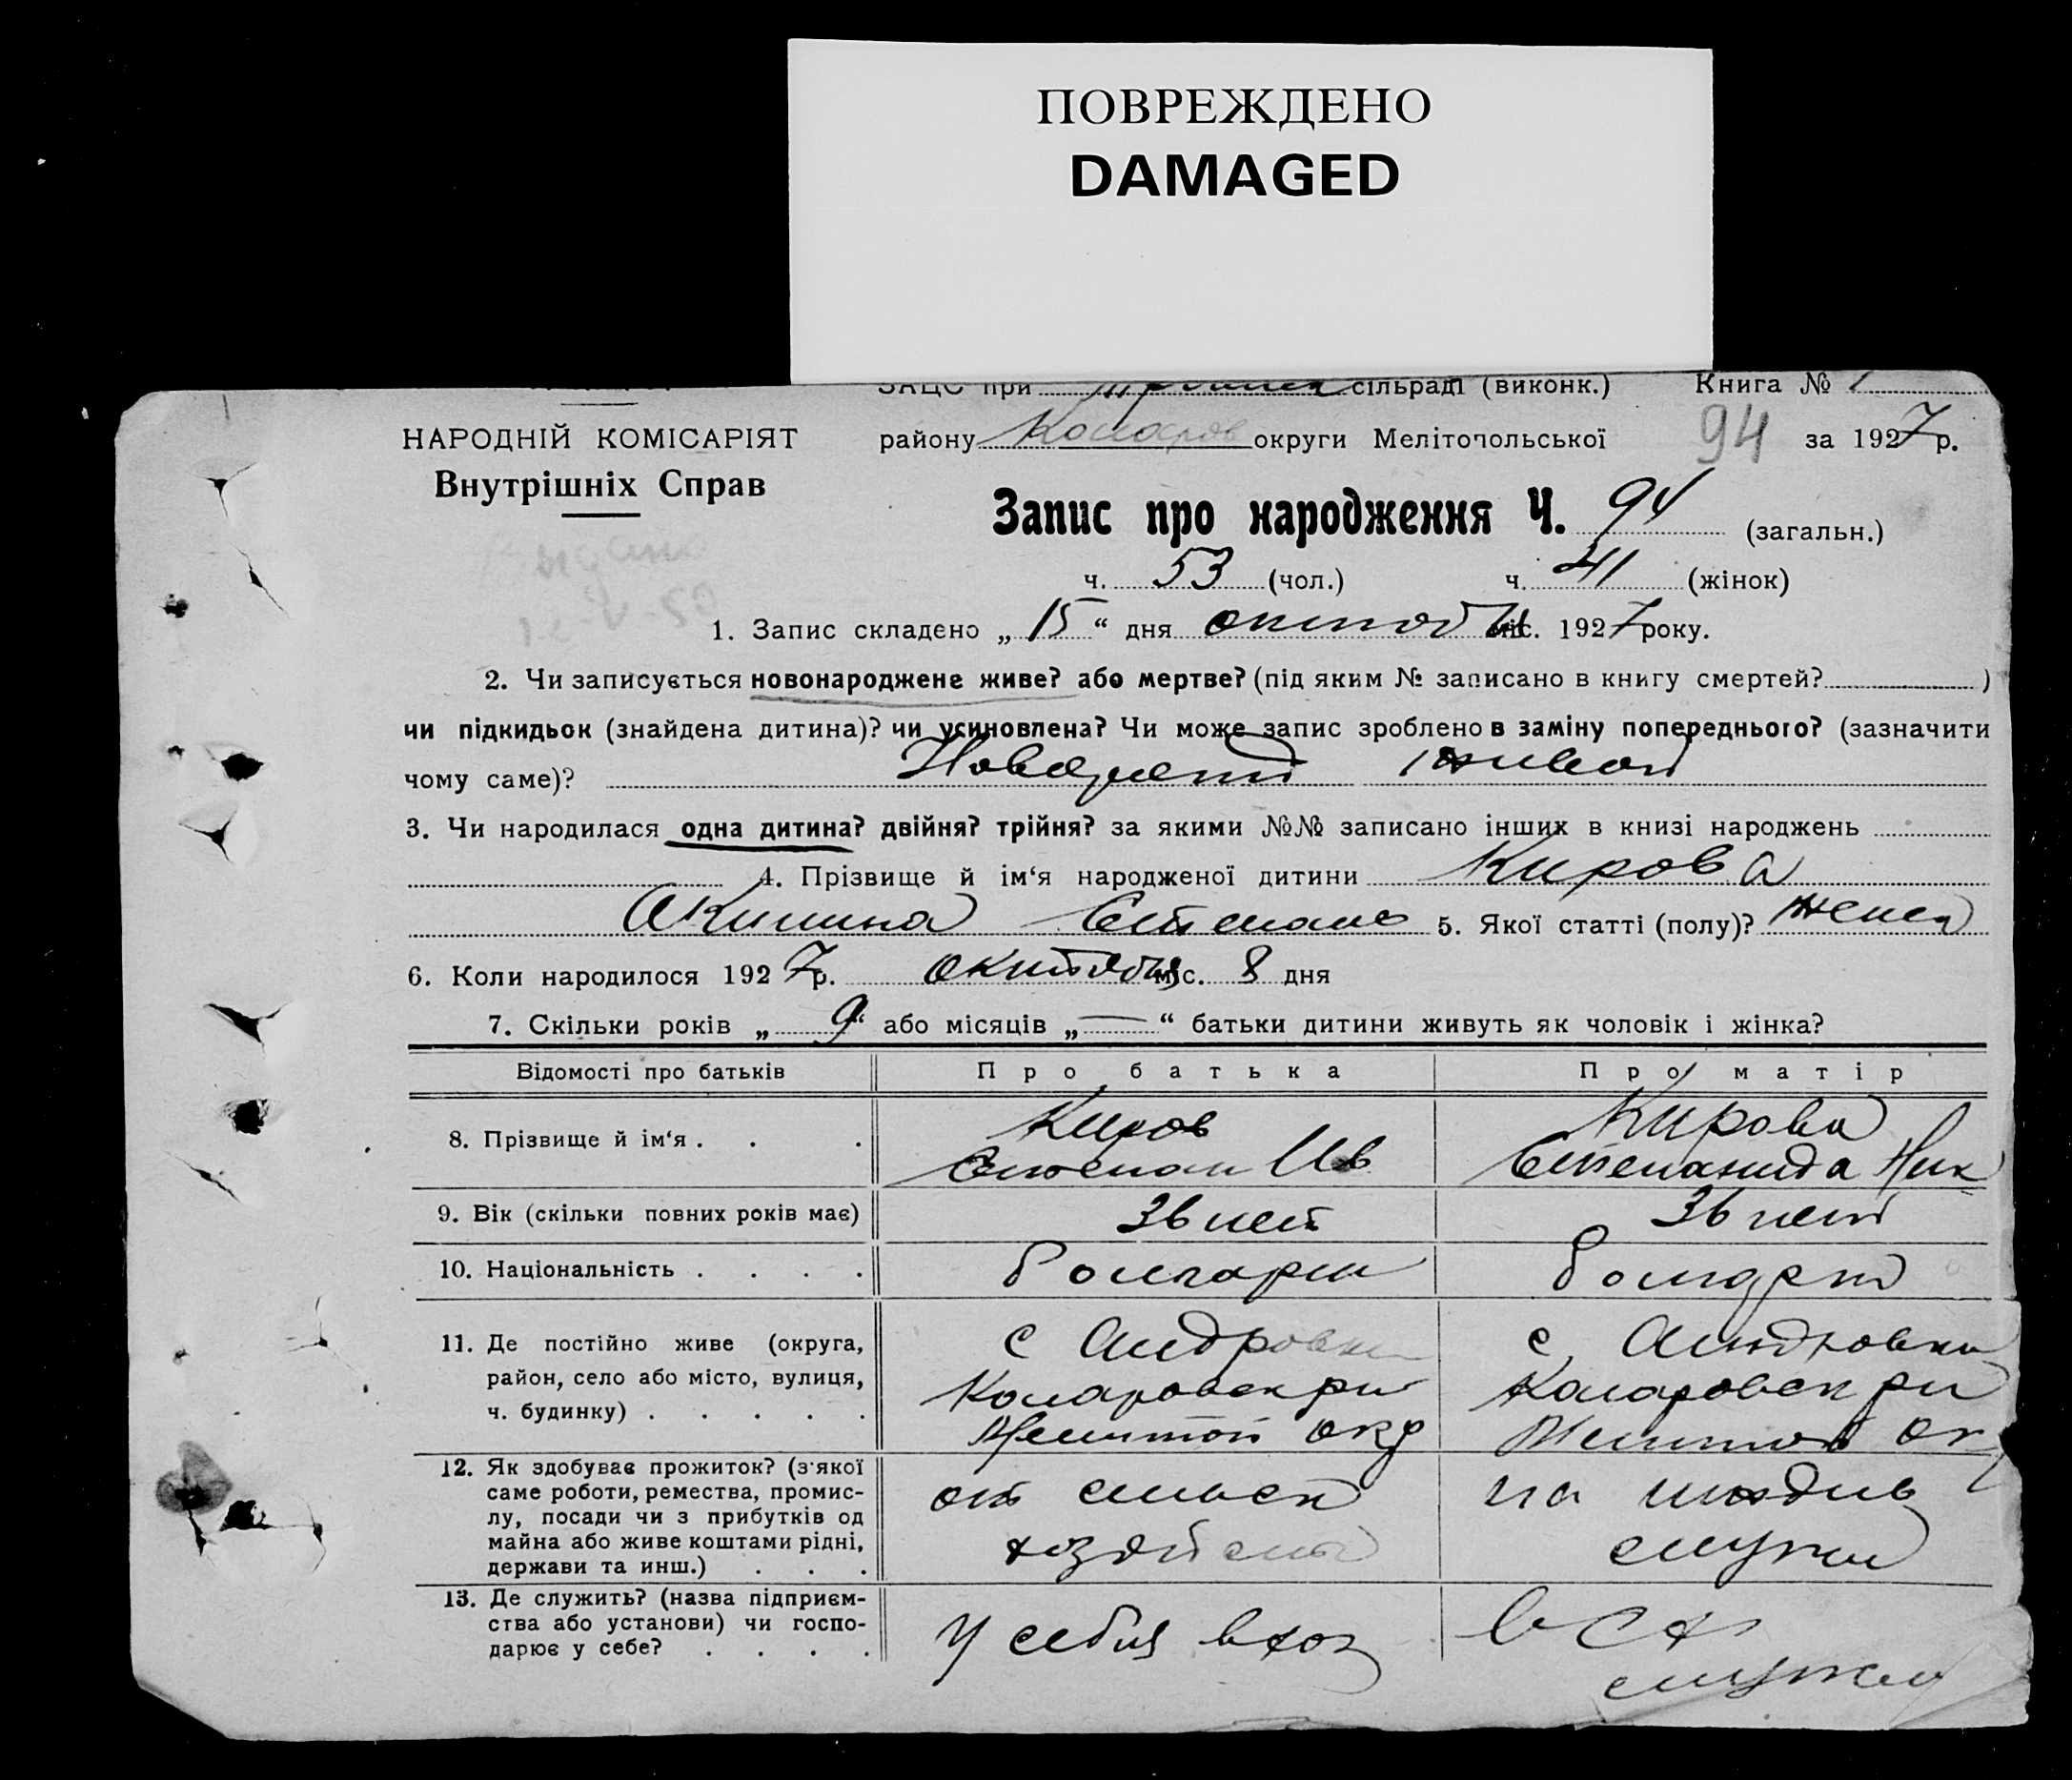 ПОВРЕЖДЕНО
DAMAGED
ЗАЦС при сільраді (виконк.) Книга № 1
НАРОДНІЙ КОМІСАРІЯТ
району Коларов округи Мелітопольської 94 за 1927 р.
Внутрішніх Справ
Запис про народження Ч. 94 (загальн.)
ч. 53 (чол.) ч. 41 (жінок)
1. Запис складено „ 15 “ дня октября міс. 1927 року.
2. Чи записується новонароджене живе? або мертве? (під яким № записано в книгу смертей? )
чи підкидьок (знайдена дитина)? чи усиновлена? Чи може запис зроблено в заміну попереднього? (зазначити
чому саме)? живой
3. Чи народилася одна дитина? двійня? трійня? за якими №№ записано інших в книзі народжень
4. Прізвище й ім‘я народженої дитини Кирова
Акилина Степано 5. Якої статті (полу)? женск
6. Коли народилося 1927 р. октября міс. 8 дня
7. Скільки років „ 9 “ або місяців „ — “ батьки дитини живуть як чоловік і жінка?
Відомості про батьків Про батька Про матір
8. Прізвище й ім‘я . . . Киров Кирова
Степан Ив Степанида Ник
9. Вік (скільки повних років має) 36 лет 36 лет
10. Національність . . . . Болгарин болгарк
11. Де постійно живе (округа, с Андровки с. Андровки
район, село або місто, вулиця, Коларовск р-н Коларовск р-н
ч. будинку) . . . . . Мелитоп окр Мелитоп ок
12. Як здобуває прожиток? (з'якої
саме роботи, ремества, промис- от сельск на иждив
лу, посади чи з прибутків од
майна або живе коштами рідні, хозяйства мужа
держави та инш.) . . .
13. Де служить? (назва підприєм-
ства або установи) чи госпо- у себя в хоз в с х
дарює у себе? . . . . мужа